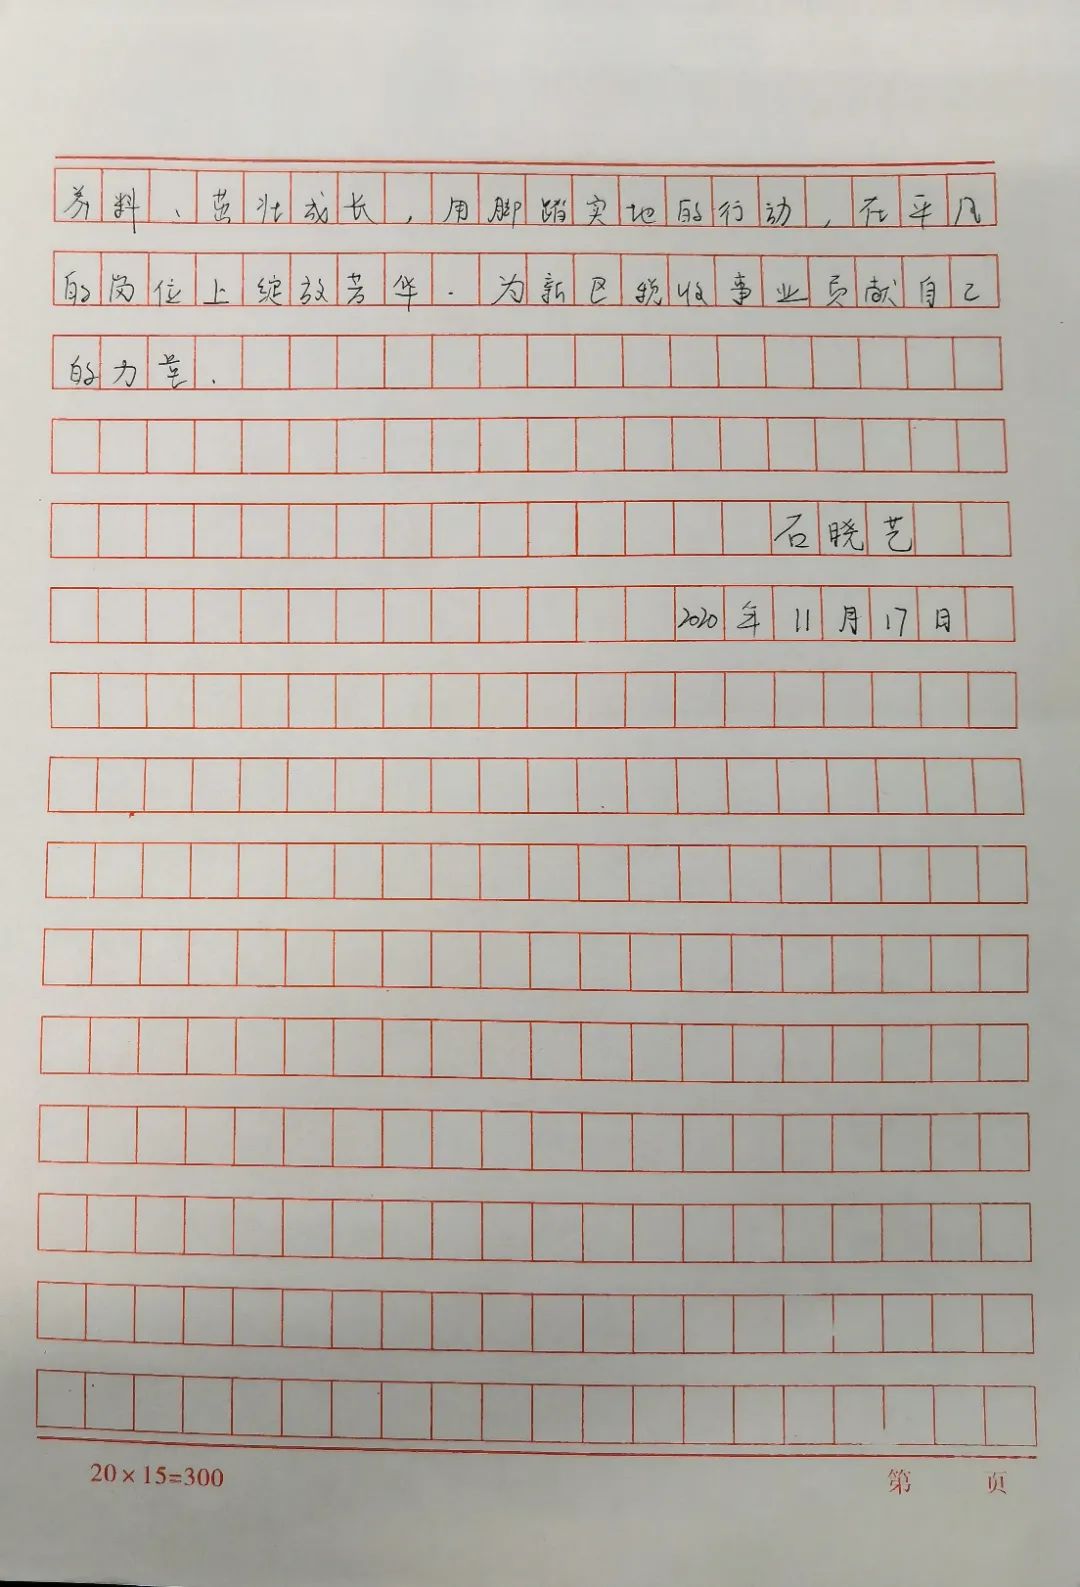 养料、茁壮成长，用脚踏实地的行动，在平凡
的岗位上绽放芳华.为新区税收事业贡献自己
的力量.
石晓艺
2020年11月17日
20×15=300 第 页